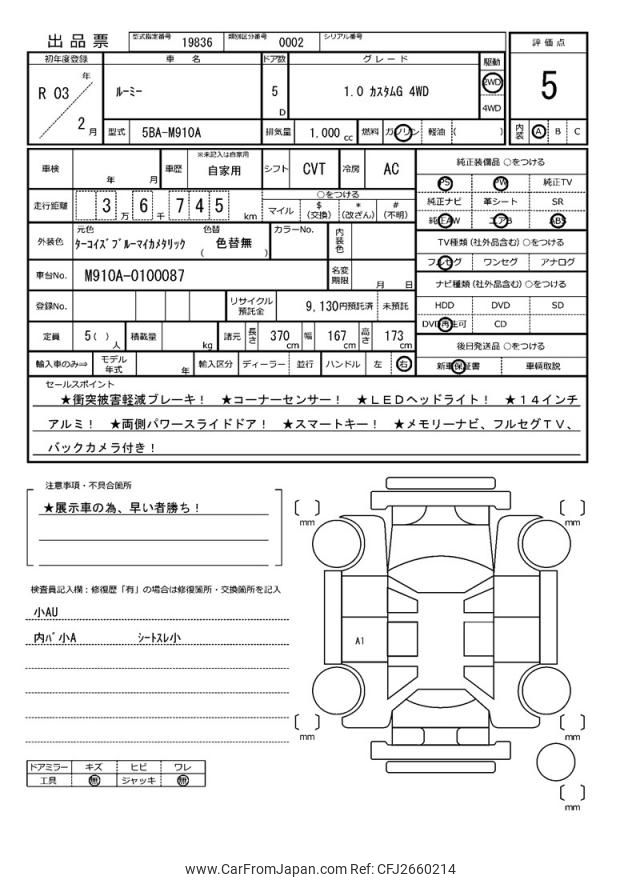 出品票 型式指定番号 19836 類別区分番号 0002 シリアル番号
評価点
5
内装 A B C
初年度登録 車名 ドア数 グレード 駆動
R 03 年 2 月
ルーミー
5 D
1.0 カスタムG 4WD
2WD
4WD
型式 5BA-M910A 排気量 1.000 cc 燃料 ガソリン 軽油 ( )
車検 年 月 車歴 ※未記入は自家用 自家用 シフト CVT 冷房 AC
走行距離 3 万 6 千 7 4 5 km
○をつける
マイル $ (交換) * (改ざん) # (不明)
外装色 元色 ターコイズブルーマイカメタリック 色替 ( 色替無 ) カラーNo. 内装色
車台No. M910A-0100087 名変期限 月 日
登録No. リサイクル預託金 9,130円預託済 未預託
定員 5( ) 人 積載量 kg 諸元 長さ 370 cm 幅 167 cm 高さ 173 cm
輸入車のみ⇒ モデル年式 年 輸入区分 ディーラー 並行 ハンドル 左 右
純正装備品 ○をつける
PS PW 純正TV
純正ナビ 革シート SR
純正AW エアB ABS
TV種類 (社外品含む) ○をつける
フルセグ ワンセグ アナログ
ナビ種類 (社外品含む) ○をつける
HDD DVD SD
DVD再生可 CD
後日発送品 ○をつける
新車保証書 車輌取説
セールスポイント
★衝突被害軽減ブレーキ！ ★コーナーセンサー！ ★ＬＥＤヘッドライト！ ★１４インチ
アルミ！ ★両側パワースライドドア！ ★スマートキー！ ★メモリーナビ、フルセグＴＶ、
バックカメラ付き！
注意事項・不具合箇所
★展示車の為、早い者勝ち！
検査員記入欄：修復歴「有」の場合は修復箇所・交換箇所を記入
小AU
内ﾊﾞ小A ｼｰﾄｽﾚ小
ドアミラー キズ ヒビ ワレ
工具 無 ジャッキ 無
mm
mm
A1
mm
mm
mm
www.CarFromJapan.com Ref: CFJ2660214